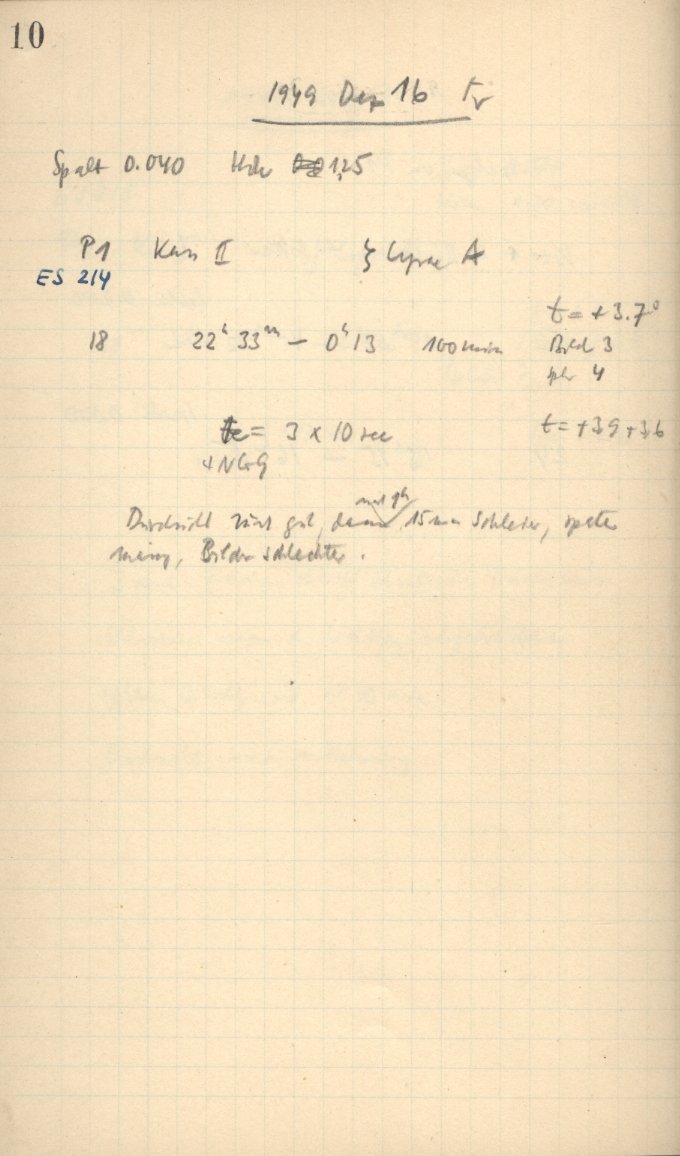 10
1949 Dez 16 Fr
Spalt 0.040 Höhe 1,25
P1 Kam II ξ Lyrae A
ES 214
t = +3.7°
18 22h 33m – 0h 13 100 min Bild 3
4
te = 3 x 10 sec t = +3.9 +3.6
Durchsicht zuerst gut, dann 15 min Schleier, später
mässig, Bilder schlechter.